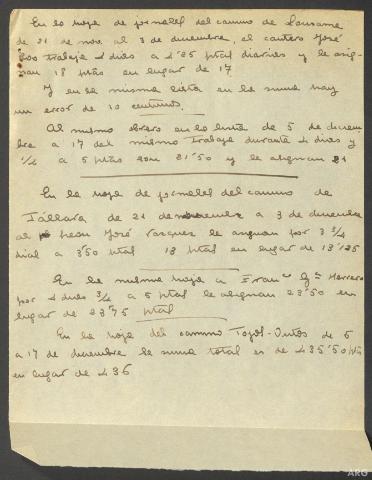 En la hoja de jornales del camino de Lousame
de 21 de nov. al 3 de diciembre, el cantero José
Loo trabaja 4 dias a 4'25 ptas diarias y le asig-
nan 18 ptas en lugar de 17
Y en la misma lista en la suma hay
un error de 10 centimos.
Al mismo obrero en la lista de 5 de diciem
bre a 17 del mismo trabaja durante 4 dias y
1/4 a 5 ptas son 21'50 y le asignan 21
En la hoja de jornales del camino de
Tállara de 21 de noviembre a 3 de diciembre
al peon José Vazquez le asignan por 3 3/4
dias a 3'50 ptas 13 ptas en lugar de 13'125
En la misma hoja a Fran.co Gª Herrero
por 4 dias 3/4 a 5 ptas le asignan 23'50 en
lugar de 23'75 ptas
En la hoja del camino Toxos-Outos de 5
a 17 de diciembre la suma total es de 435'50 pts
en lugar de 436
ARG